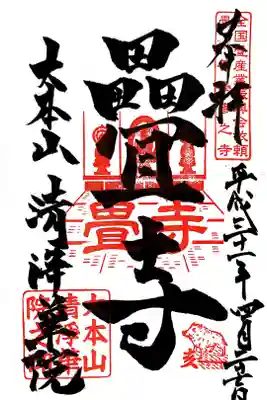 全国畳産業振興会依頼
之寺
奉拝
平成三十一年四月
疊寺
畳寺
大本山 清浄華院
大本山
清浄華
亥